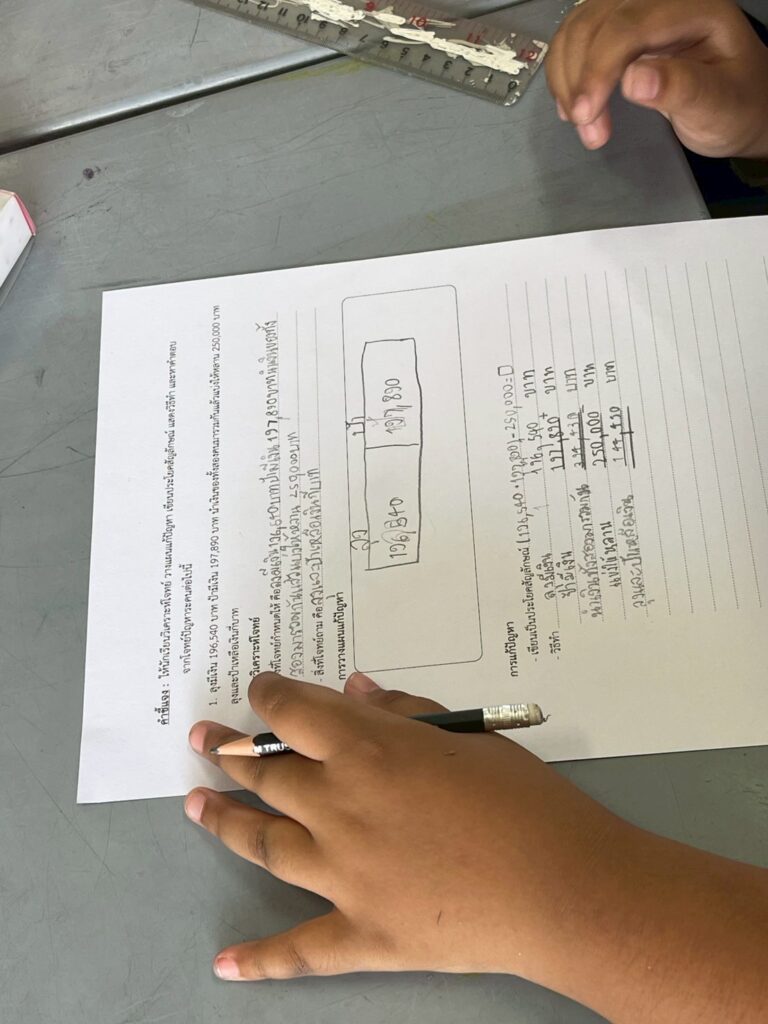 คำชี้แจง : ให้นักเรียนวิเคราะห์โจทย์ วางแผนแก้ปัญหา เขียนประโยคสัญลักษณ์ แสดงวิธีทำ และหาคำตอบ
จากโจทย์ปัญหาระคนต่อไปนี้
1. ลุงมีเงิน 196,540 บาท ป้ามีเงิน 197,890 บาท นำเงินของทั้งสองคนมารวมกันแล้วแบ่งให้หลาน 250,000 บาท
ลุงและป้าเหลือเงินกี่บาท
วิเคราะห์โจทย์
งที่โจทย์กำหนดให้ คือ ลุงมีเงิน 196,540 บาท ป้ามีเงิน 197,890 บาท นำเงินของทั้ง
สองมารวมกันแล้วแบ่งให้หลาน 250,000 บาท
- สิ่งที่โจทย์ถาม คือ ลุงและป้าเหลือเงินกี่บาท
การวางแผนแก้ปัญหา
ลุง ป้า
196,540 197,890
การแก้ปัญหา
- เขียนเป็นประโยคสัญลักษณ์ (196,540 + 197,890) - 250,000 = □
- วิธีทำ ลุงมีเงิน 196,540 บาท
ป้ามีเงิน 197,890 + บาท
นำเงินทั้งสองมารวมกัน 394,430 บาท
แบ่งให้หลาน 250,000 บาท
ลุงและป้าเหลือเงิน 144,430 บาท
TRU
0 1 2 3 4 5 6 7 8 9 10